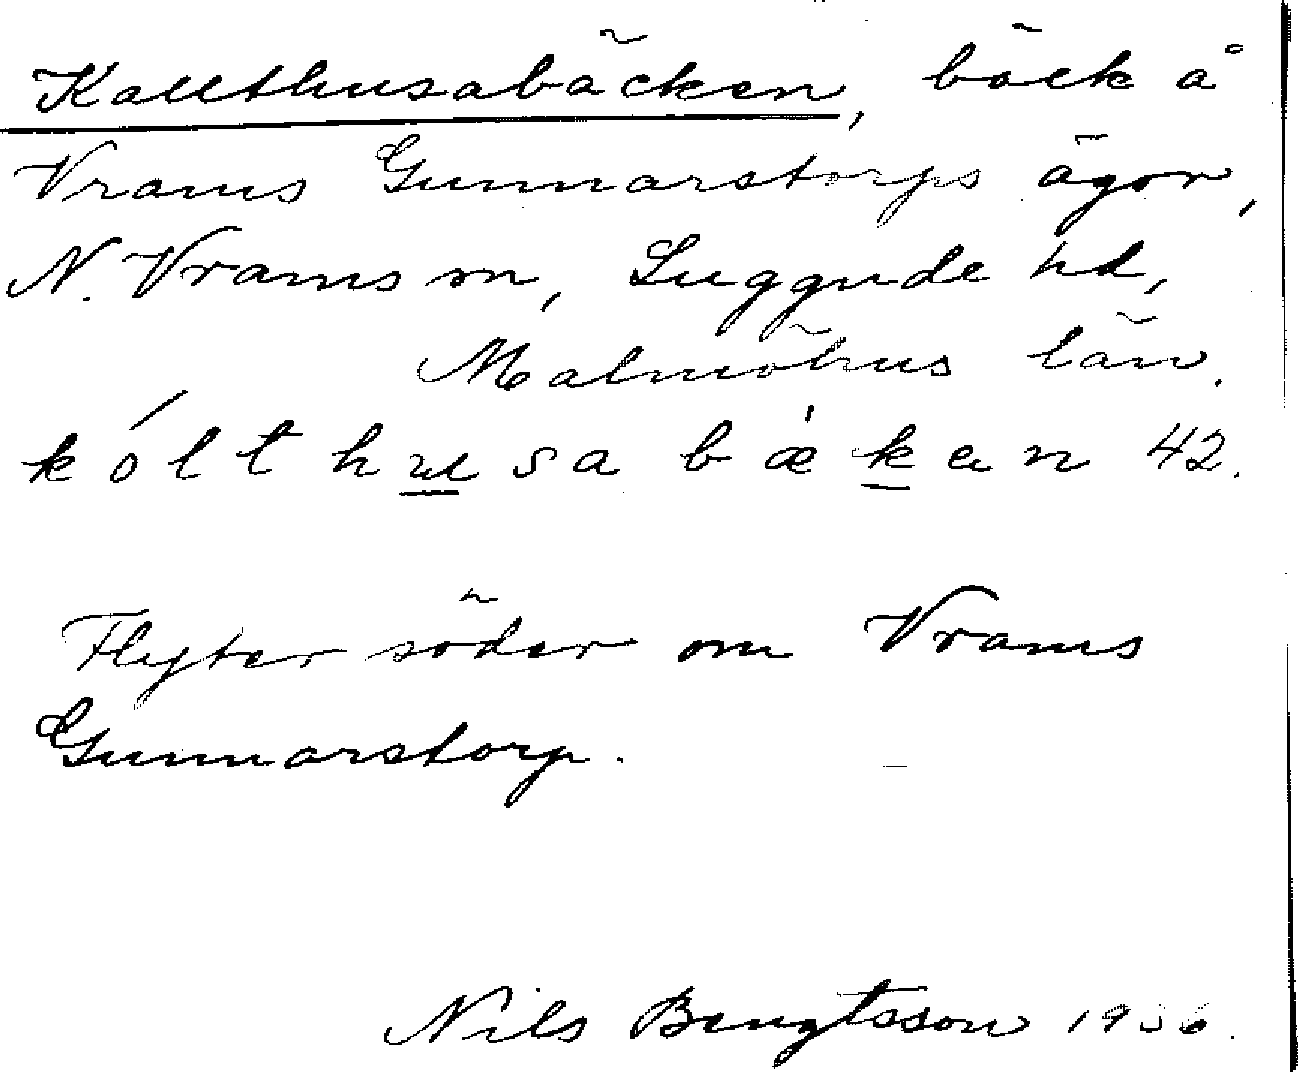 Kallthusabäcken, bäck å
Vrams Gunnarstorps ägor,
N. Vrams sn, Luggude hd,
Malmöhus län.
kólthusa bækan 42.
Flyter söder om Vrams
Gunnarstorp.
Nils Bengtsson 1936.